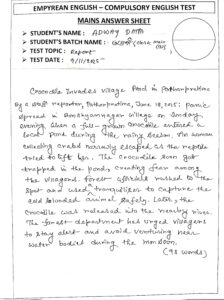 EMPYREAN ENGLISH – COMPULSORY ENGLISH TEST
MAINS ANSWER SHEET
➤ STUDENT'S NAME: ADWAY DATTA
➤ STUDENT'S BATCH NAME:
➤ TEST TOPIC: Report
➤ TEST DATE: 9/11/2025
Crocodile Invades Village Pond in Patharpratima
By a staff reporter, Patharpratima, June 18, 2025: Panic
spread in village on Sunday
evening when a full-grown crocodile entered a
local pond during the rainy season. A woman
collecting crabs narrowly escaped as the reptile
tried to left her. The crocodile soon got
trapped in the pond, creating fear among
the villagers. Forest officials rushed to the
spot and used tranquilizer to capture the
cold blooded animal safely. Later, the
crocodile was released into the nearby river.
The forest department has urged villagers
to stay alert and avoid venturing near
water bodies during the monsoon.
(98 words)